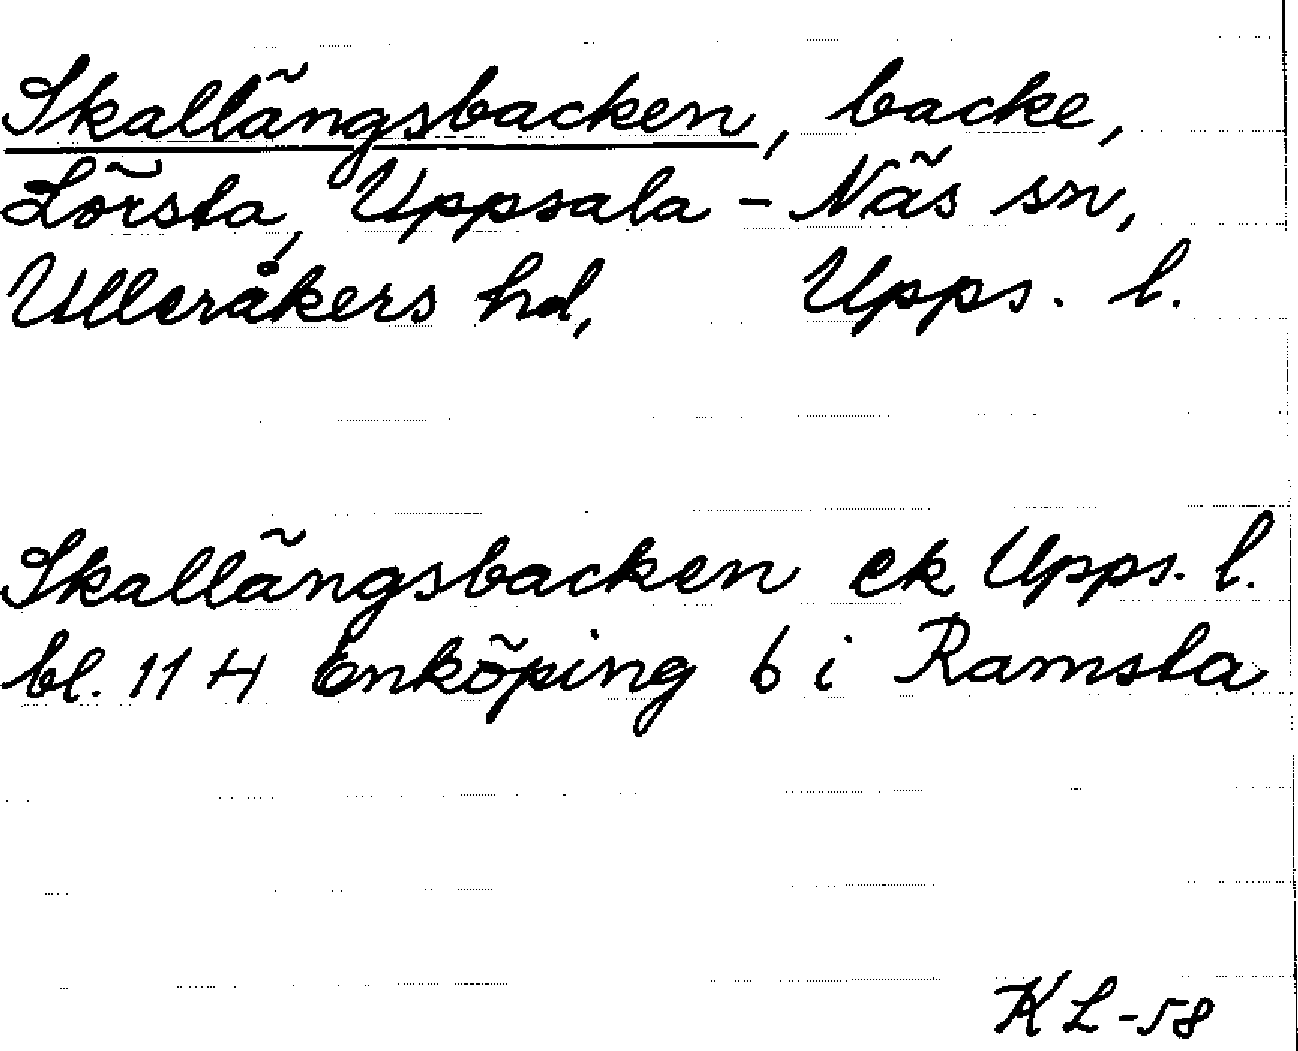 Skallängsbacken, backe,
Lörsta, Uppsala - Näs sn,
Ulleråkers hd, Upps. l.
Skallängsbacken ek Upps. l.
bl. 114 Enköping 6 i Ramsta
KL-58